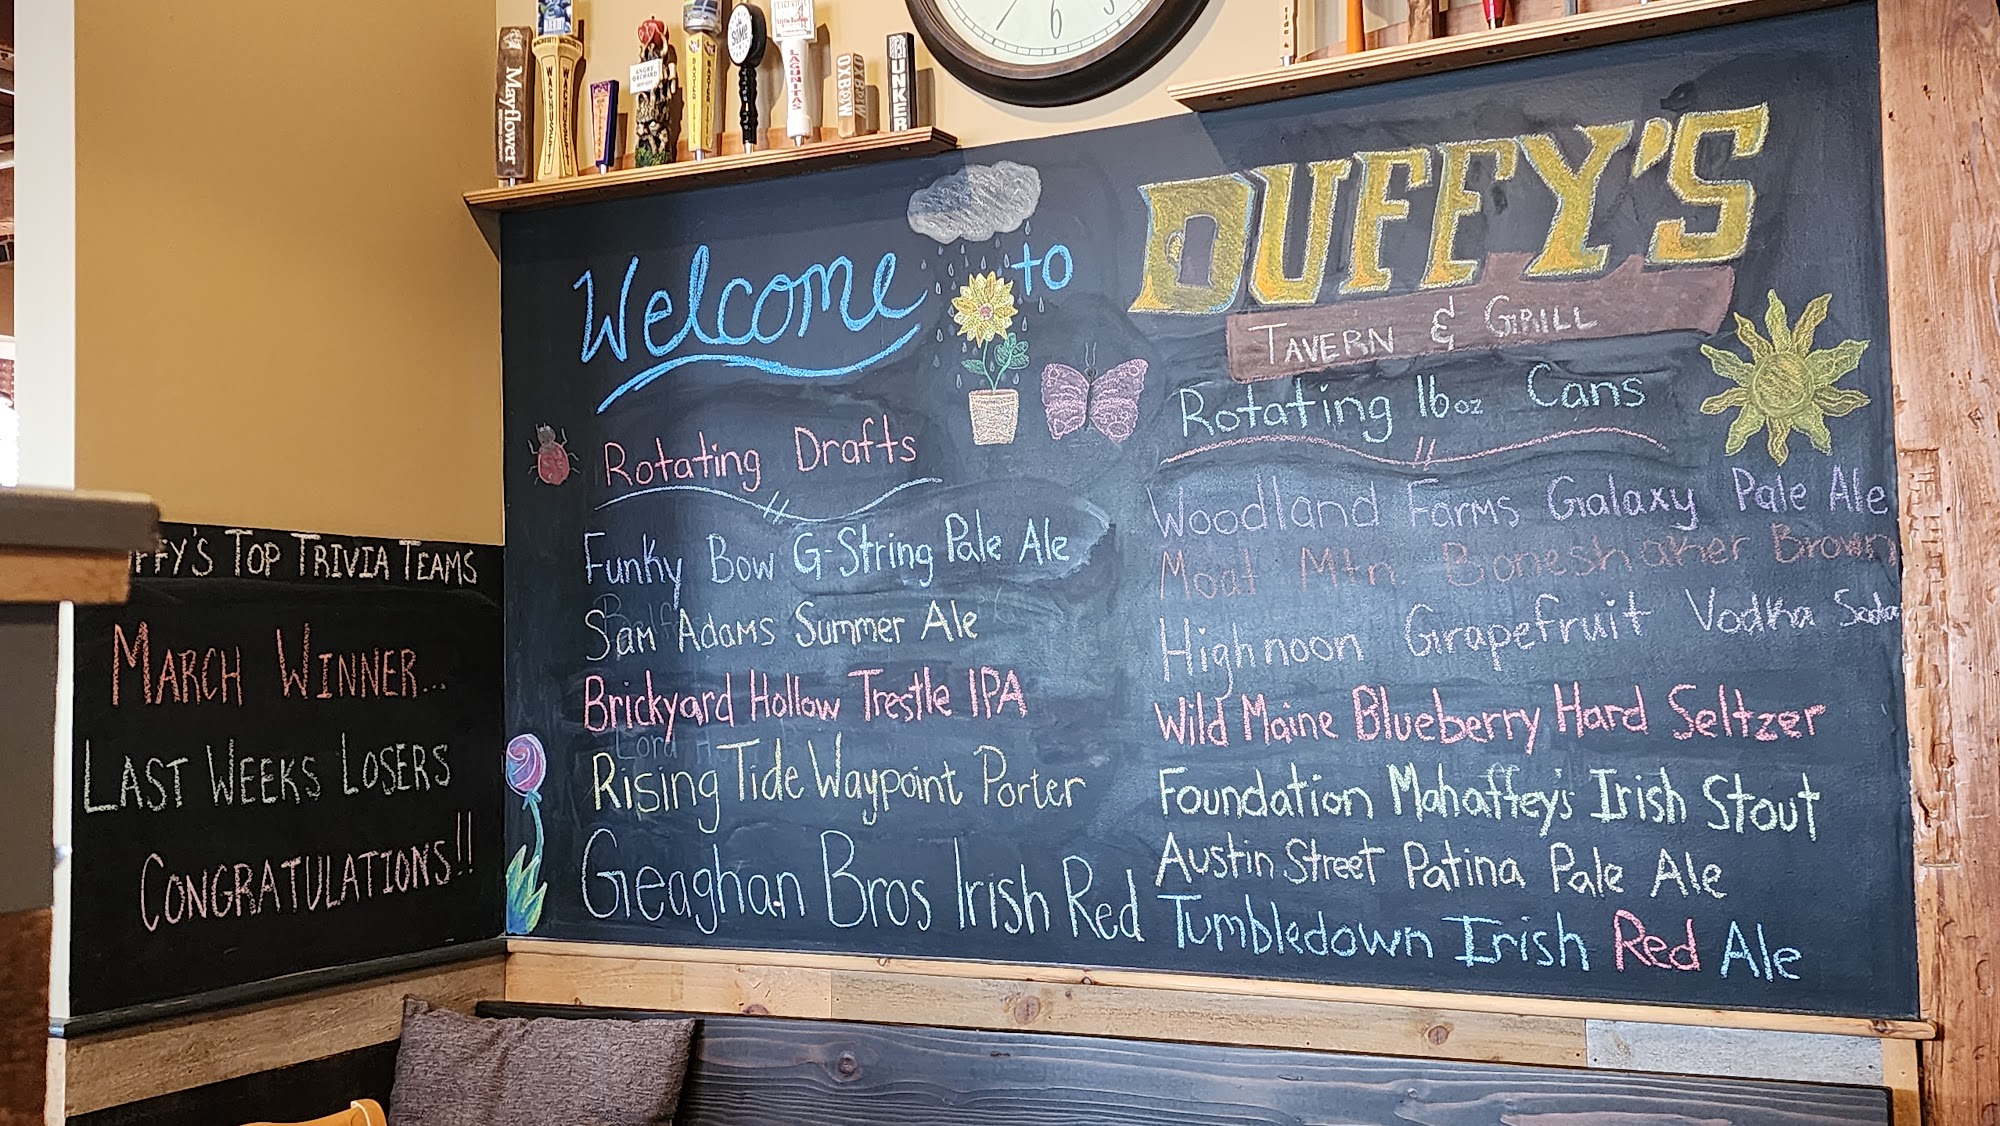 Mayflower
WACHUSETT
ANGRY ORCHARD
BAXTER
BAXTER
SOME
LAGUNITAS
OXBOW
OXBOW
BUNKER
6
Welcome to
DUFFY'S
TAVERN & GRILL
Rotating Drafts
Funky Bow G-String Pale Ale
Sam Adams Summer Ale
Brickyard Hollow Trestle IPA
Rising Tide Waypoint Porter
Geaghan Bros Irish Red
Rotating 16oz Cans
Woodland Farms Galaxy Pale Ale
Moat Mtn. Boneshaker Brown
Highnoon Grapefruit Vodka Soda
Wild Maine Blueberry Hard Seltzer
Foundation Mahaffey's Irish Stout
Austin Street Patina Pale Ale
Tumbledown Irish Red Ale
FFY'S TOP TRIVIA TEAMS
MARCH WINNER...
LAST WEEKS LOSERS
CONGRATULATIONS!!